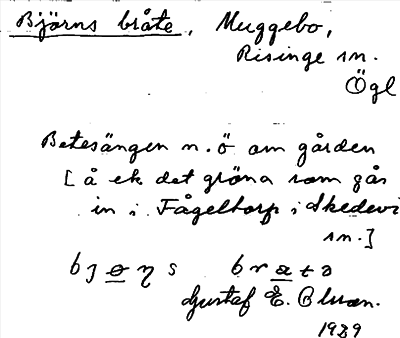 Björns bråte, Muggebo,
Risinge sn.
Ögl
Betesängen n.ö om gården
[å ek det gröna som går
in i Fågeltorp i Skedevi
sn.]
Gustaf E.
1929